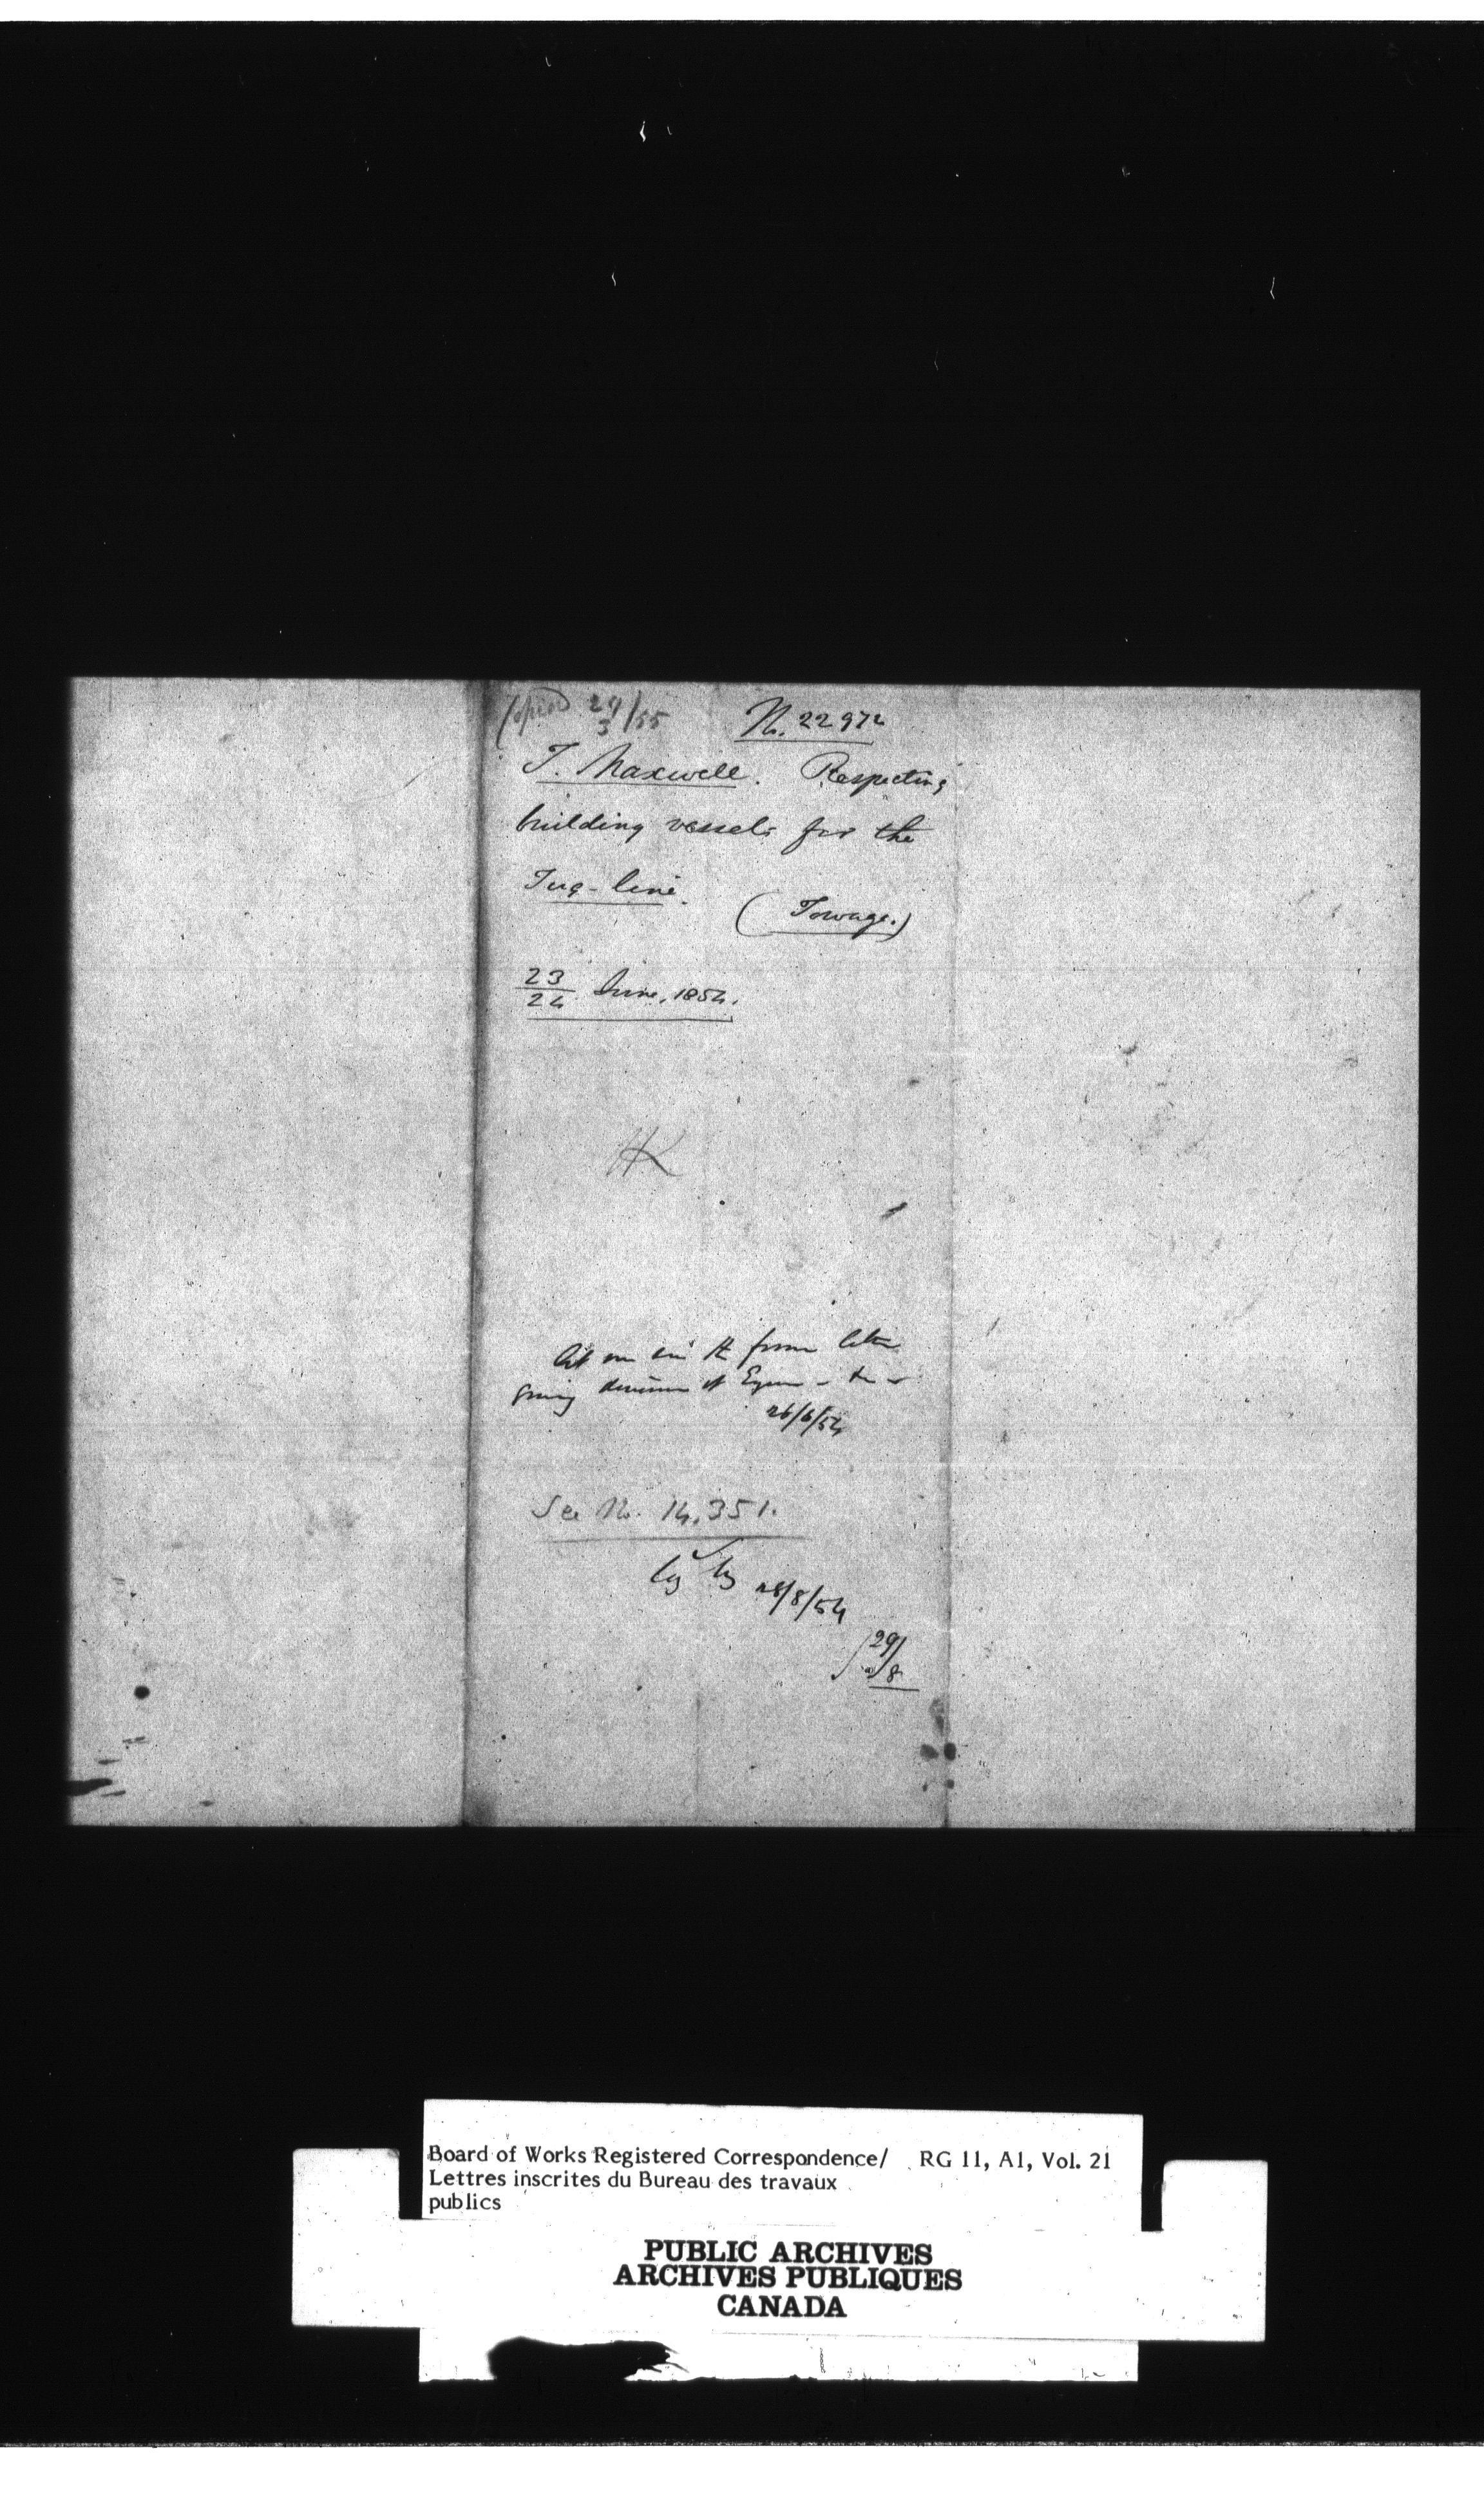 Copied 24/3/55
No. 22972
T. Maxwell. Respecting
building vessels for the
Tug-line.
(Towage.)
23/24 June, 1854.
HK
form letter
giving
26/6/54
See No. 14,351.
28/8/54
29/8
Board of Works Registered Correspondence/ RG 11, A1, Vol. 21
Lettres inscrites du Bureau des travaux
publics
PUBLIC ARCHIVES
ARCHIVES PUBLIQUES
CANADA